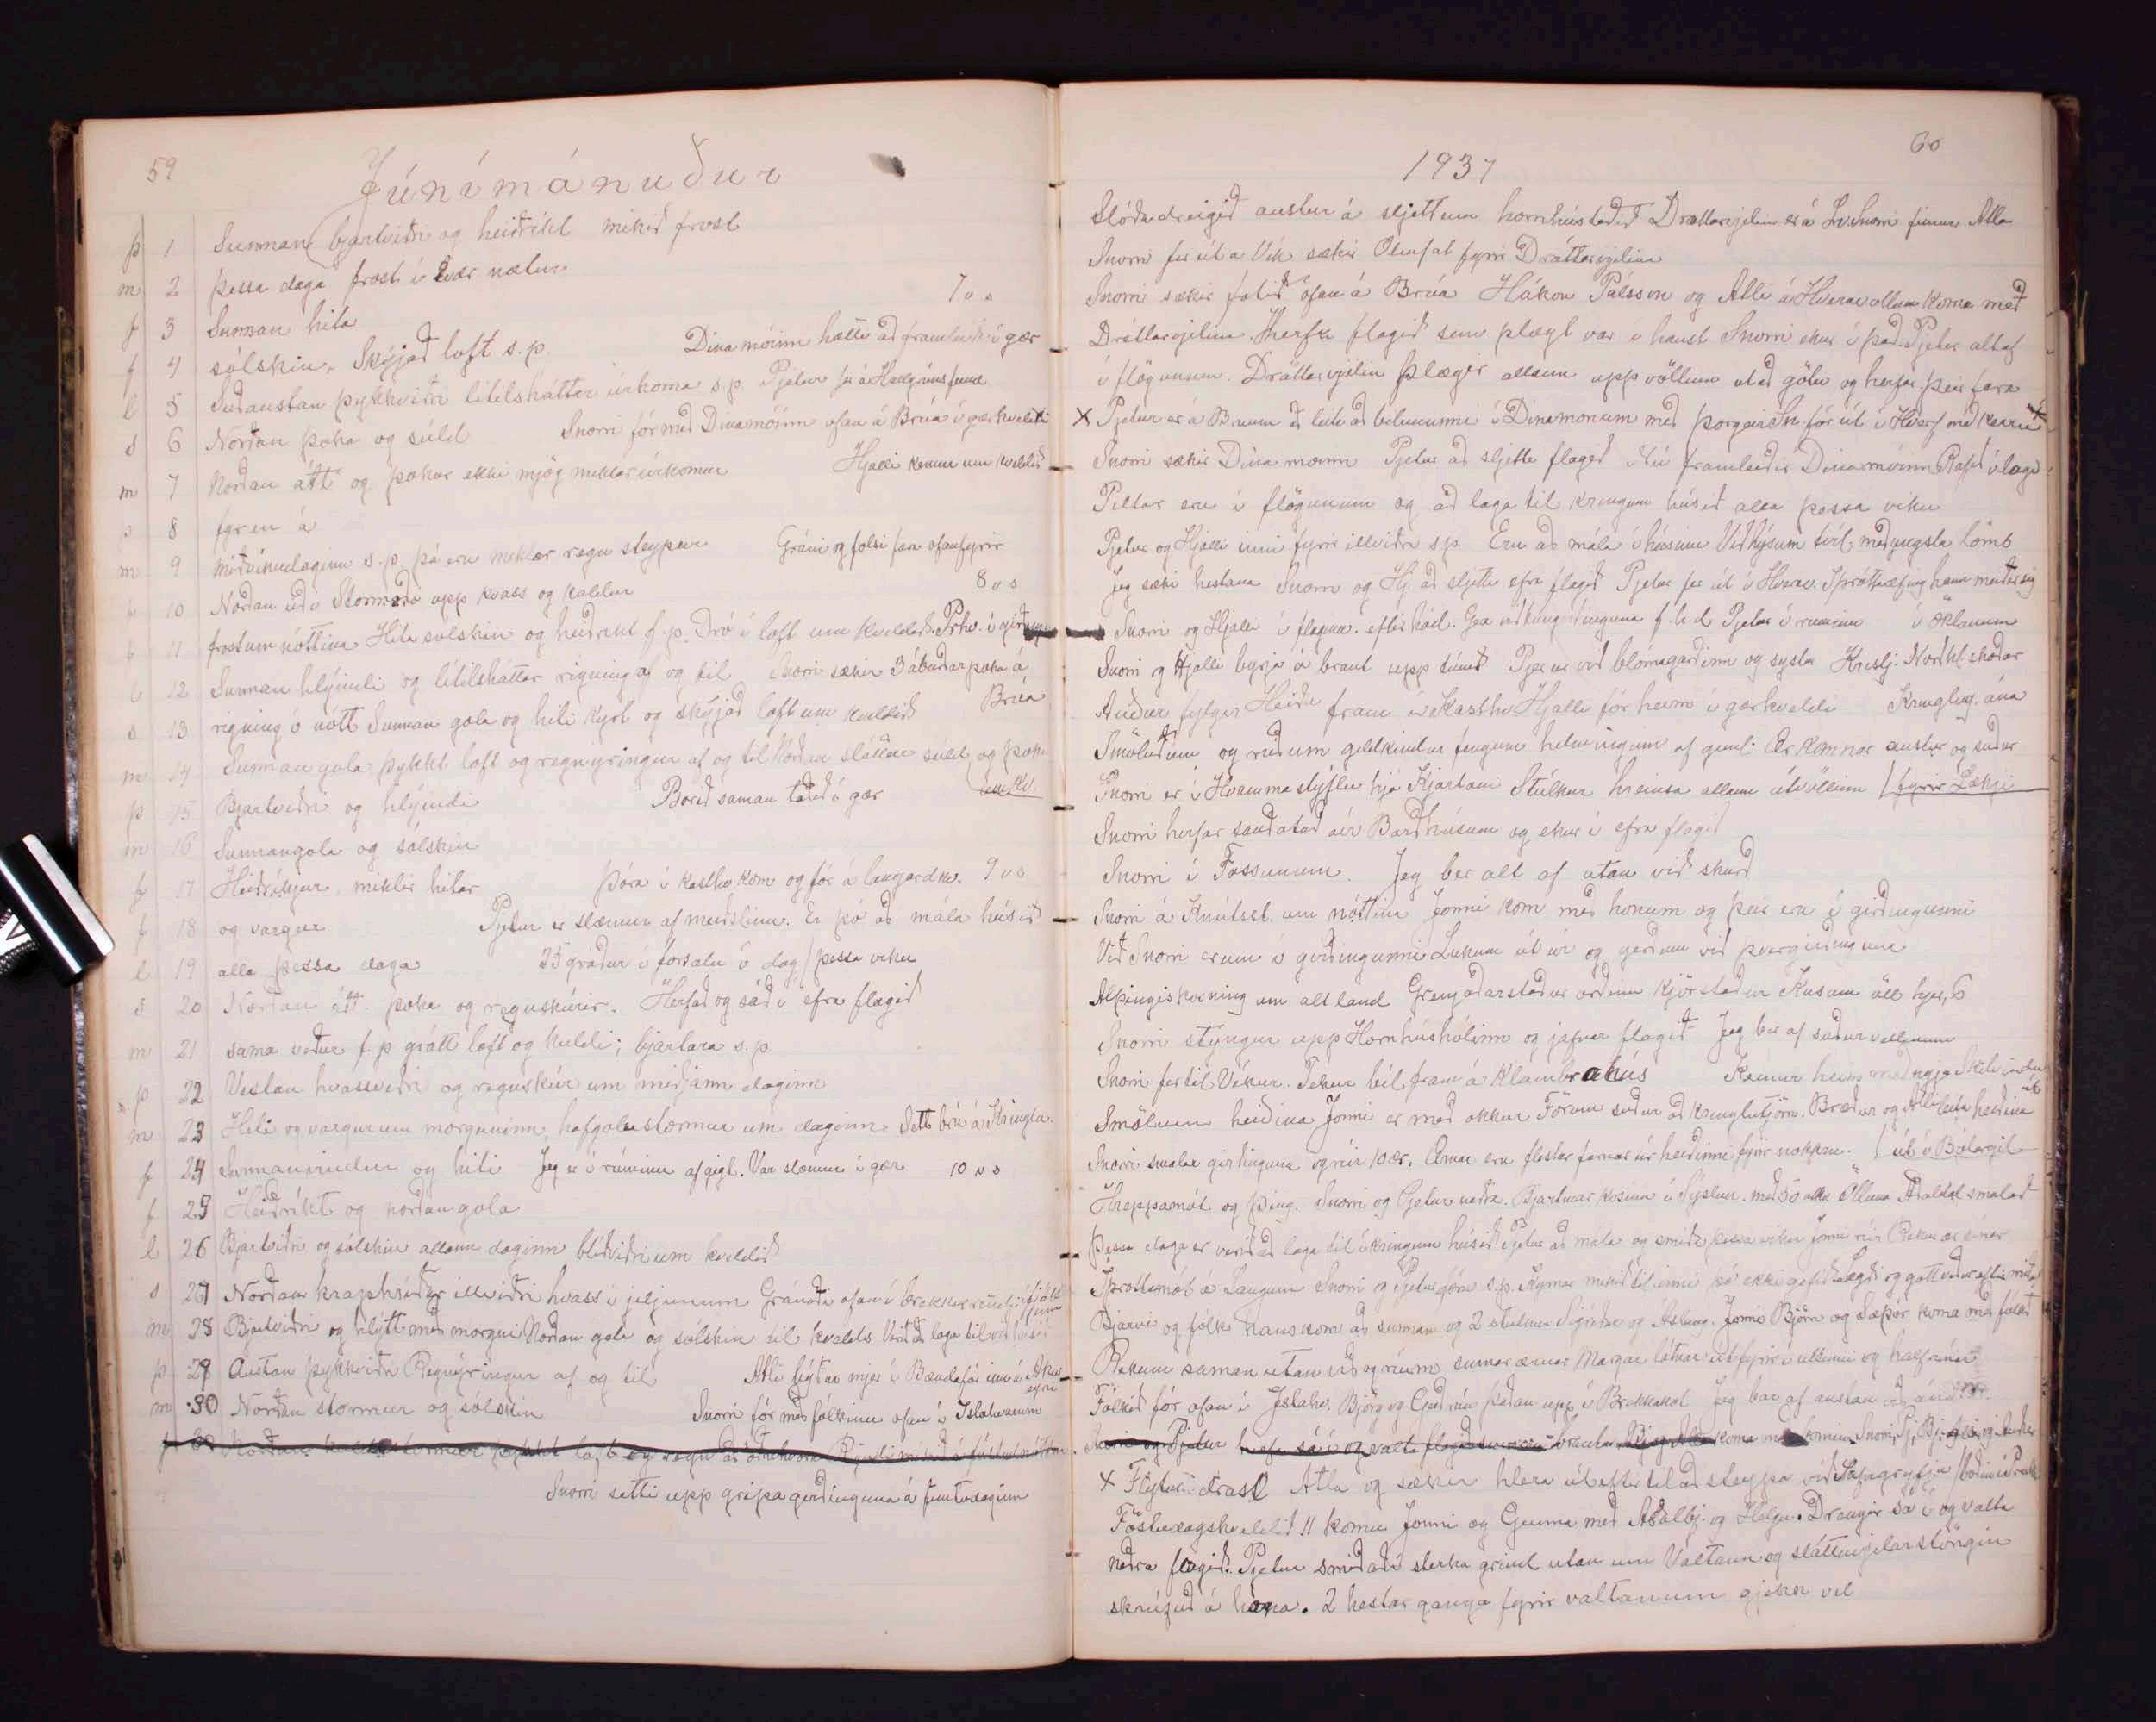 59
Júnímánuður
þ 1 Sunnan bjartviðri og heiðríkt mikið frost
m 2 þessa daga frost í tvær nætur
7 v s
f 3 Sunnan hita
f 4 sólskin. Skýjað loft s.p. Dinamóinn hætti að framleiða í gær
l 5 Suðaustan þykkviðri lítilsháttar úrkoma s.p. Pjetur fer á Hallgríms fund
s 6 Norðan þoka og súld Snorri fór með Dinamóinn ofan á Brúa í gærkveldi
m 7 Norðan átt og þokur ekki mjög miklar úrkomur Hjalli kemur um kveldið
þ 8 fyren á
m 9 miðvikudaginn s.p. þá eru miklar regn steypur Gráni og folsi fara ofanfyrir
8 v s
f 10 Norðan úði Stormaði upp kvass og kaldur
f 11 frost um nóttina Hita sólskin og heiðríkt f.p. Dró í loft um kveldið.
l 12 Sunnan hlýindi og lítilsháttar rigning af og til Snorri sækir 3 áburðarpoka á Brúa
s 13 rigning í nótt Sunnan gola og hiti Kyrt og skýjað loft um kveldið
m 14 Sunnan gola þykkt loft og regnýringur af og til Norðan sláttur súld og þoka um kv.
þ 15 Bjartviðri og hlýindi Borið saman taðið í gær
m 16 Sunnangola og sólskin
f 17 Heiðríkjur, miklir hitar Þóra í Kasthv. kom og fór á laugardm. 9 v s
f 18 og vargur Pjetur er slæmur af meiðslinu. Er þó að mála húsið
l 19 alla þessa daga 25 gráður í forsælu í dag / þessa viku
s 20 Norðan átt. þoka og regnskúrir. Herfað og sáð í efra flagið
m 21 sama veður f.p. grátt loft og kuldi; bjartara s.p.
þ 22 Vestan hvassviðri og regnskúr um miðjann daginn
m 23 Hiti og vargur um morguninn, hafgolustormur um daginn. Sett brú á Kringlu.
f 24 Sunnanvindur og hiti Jeg er í rúminu af gigt. Var slæmur í gær 10 v s
f 25 Heiðríkt og norðangola
l 26 Bjartviðri og sólskin allann daginn blíðviðri um kveldið
s 27 Norðan krapahríðar illviðri hvass í jeljunum
m 28 Bjartviðri og hlýtt með morgni Norðan gola og sólskin til kvelds
þ 29 Austan þykkviðri Regnýringur af og til Atli flýtur mjer í Bændaför inn á Akureyri
m 30 Norðan stormur og sólskin Snorri fór með fólkinu ofan í Íslahvamm
Snorri setti upp gripagirðinguna á fimtudaginn
60
1937
Slóðadreigið austur á sljettum hornhústaðið Dráttarvjelin er á Lv. Snorri finnur Atla
Snorri fer út á Vík sækir Oliufat fyrir Dráttarvjelina
Snorri sækir fatið ofan á Brúa Hákon Pálsson og Atli á Hveravöllum koma með
Dráttarvjelina. Herfa flagið sem plægt var í haust Snorri ekur í það. Pjetur altaf
í flögunum. Dráttarvjelin plægir allann uppvöllinn útað götu og herfar. Þeir fara
x Pjetur er á Brúum að leita að biluninni í Dinamonum með Þorgeiri Sn. fór út í Hverf með kerru
Snorri sækir Dínamóinn Pjetur að sljetta flagið Nú framleiðir Dinamóinn Rafst. í lagi
Piltar eru í flögunum og að laga til kringum húsið alla þessa viku
Pjetur og Hjalli inni fyrir illviðri s.p. Eru að mála í húsinu Við hýsum tvíl. með yngsta lömb
Jeg sæki hestana Snorri og Hj. að sljetta efra flagið Pjetur fer út í Hverav. Íþróttaæfing hann meiðir sig
Snorri og Hjalli í flaginu eftir hád. Gera við girðinguna f.h.d Pjetur í rúminu í öklanum
Snorri og Hjalli byrja á braut upp túnið Pjetur við blómagarðinn og systur Kristj. Norðkl. skoðar
Auður fylgir Heiðu fram í Kasthv. Hjalli fór heim í gærkveldi Kringlug. ána
Smöluðum og rúðum geldkindur fengum helmingum af geml. Ær komnar austur og suður
Snorri er í Hvammastýflu hjá Kjartani Stúlkur hreinsa allann útvöllinn / fyrir Læki
Snorri herfar sauðatað úr Barðhúsum og ekur í efra flagið
Snorri í Fossunum. Jeg ber alt af utan við skurð
Snorri á Knútsst. um nóttina Jonni kom með honum og þeir eru í girðingunni
Við Snorri erum í girðingunni Lukum út úr og gerðum við þvergirðinguna
Alþingiskosning um alt land Grenjaðarstaður orðinn kjörstaður Kusum öll hjer, 6
Snorri stingur upp Hornhúshólinn og jafnar flagið Jeg ber af suðurvellinum
Snorri fer til Víkur. Tekur bíl fram á Klambrahús Kemur heim með nýja Skilvindu
Smölum heiðina Jonni er með okkur Förum suður að Kringlutjörn. Bræður og Atli leita heiðina út
Snorri smalar girðinguna og rúir 10 ær. Ærnar eru flestar farnar úr heiðinni fyrir nokkru. / út í Bólargil
Hreppamót og þing. Snorri og Pjetur neðra. Bjartmar kosinn í Sýslun. með 50 atkv. Öllum Aðaldal smalað
Þessa daga er verið að laga til í kringum húsið Pjetur að mála og smíða þessa viku Jonni rúir Rekur ær sínar
Íþróttamót á Laugum Snorri og Pjetur fóru s.p.
Bjarni og fólk hans kom að sunnan og 2 stúlkur Sigríður og Áslaug. Jonni Björn og Sæþór koma með fólkið
Rekum saman utan við og rúum sumar ærnar Margar lótnar út fyrir í ullinni og hálfrúnar
Fólkið fór ofan í Íslahv. Björg og Guðrún þaðan upp í Brekkukot Jeg bar af austan við ána
x Flytur drasl Atla og sækir hlera út eftir til að steypa við Safngryfju
Föstudagskveldið 11 komu Jonni og Gunna með Aðalbj. og Helgu. Drengir sá í og valta
neðra flagið. Pjetur smíðaði sterka grind utan um Valtann og sláttuvjelarstöngin
skrúfuð á hana. 2 hestar ganga fyrir valtanum gjekk vel